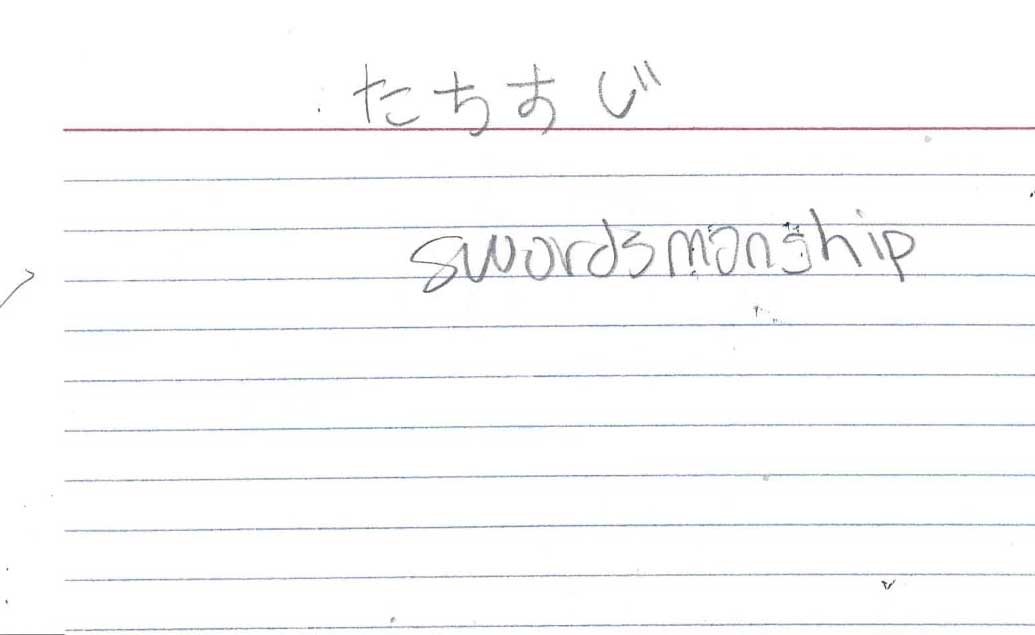 たちすじ
swordsmanship